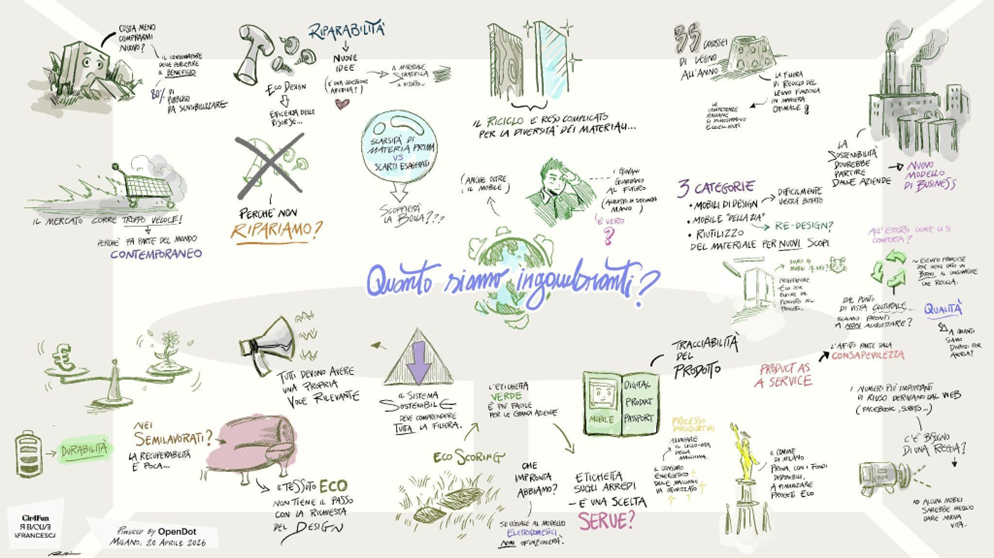 COSTA MENO
COMPRARMI
NUOVO?
IL CONSUMATORE
DEVE PERCEPIRE
IL BENEFICIO
80% DI
PUBBLICO
VA SENSIBILIZZATO
RIPARABILITÀ
NUOVE
IDEE
ECO DESIGN
EFFICENZA DELLE
RISORSE...
IL RICICLO È RESO COMPLICATO
PER LA DIVERSITÀ DEI MATERIALI...
35 COLOSSEI
DI LEGNO
ALL'ANNO
LA FILIERA
DI RICICLO DEL
LEGNO FUNZIONA
IN MANIERA
OTTIMALE
LE
COMPETENZE
ITALIANE
SI DIMOSTRANO
ECCELLENTI
LA
SOSTENIBILITÀ
DOVREBBE
PARTIRE
DALLE AZIENDE
NUOVO
MODELLO
DI BUSINESS
SCARSITÀ DI
MATERIA PRIMA
VS
SCARTI ESAGERATI
SCOPPIERÀ
LA BOLLA???
IL MERCATO CORRE TROPPO VELOCE!
PERCHÉ FA PARTE DEL MONDO
CONTEMPORANEO
PERCHÉ NON
RIPARIAMO?
(ANCHE OLTRE
IL MOBILE)
I GIOVANI
GUARDANO
AL FUTURO
(ACQUISTO DI SECONDA
MANO)
È VERO
?
3 CATEGORIE
• MOBILI DI DESIGN
DIFFICILMENTE
VERRÀ BUTTATO
• MOBILE "DELLA ZIA"
RE-DESIGN?
• RIUTILIZZO
DEL MATERIALE PER NUOVI SCOPI
ALL'ESTERO COME CI SI
COMPORTA?
Quanto siamo ingombranti?
DAL PUNTO
DI VISTA CULTURALE
SIAMO PRONTI
A NON ACQUISTARE?
QUALITÀ
A QUANTO
SIAMO
DISPOSTI PER
AVERLA?
TUTTI DEVONO AVERE
UNA PROPRIA
VOCE RILEVANTE
IL SISTEMA
SOSTENIBILE
DEVE COMPRENDERE
TUTTA LA FILIERA.
L'ETICHETTA
VERDE
È PIÙ FACILE
PER LE GRANDI AZIENDE
TRACCIABILITÀ
DEL
PRODOTTO
DIGITAL
PRODUCT
PASSPORT
MOBILE
PRODUCT AS
A SERVICE
L'AFFITTO PARTE DALLA
CONSAPEVOLEZZA
I NUMERI PIÙ IMPORTANTI
DI RIUSO DERIVANO DAL WEB
(FACEBOOK, SUBITO...)
C'È BISOGNO
DI UNA REGIA?
AD ALCUNI MOBILI
SAREBBE MEGLIO
DARE NUOVA
VITA.
DURABILITÀ
NEI
SEMILAVORATI?
LA RECUPERABILITÀ
È POCA...
IL TESSUTO ECO
NON TIENE IL PASSO
CON LA RICHIESTA
DEL DESIGN
ECO SCORING
CHE
IMPRONTA
ABBIAMO?
SE UGUALE AL MODELLO
ELETTRODOMESTICI
NON FUNZIONERÀ.
ETICHETTA
SUGLI ARREDI
È UNA SCELTA
SERVE?
PROCESSO
PRODUTTIVO
ALLUNGARE
IL CICLO-VITA
DELLA
MACCHINA.
IL CONSUMO
ENERGETICO
DELLE MACCHINE
VA OTTIMIZZATO
IL COMUNE
DI MILANO
PROVA, CON I FONDI
DISPONIBILI,
A FINANZIARE
PROGETTI ECO
POWERED BY OpenDot
MILANO, 20 APRILE 2026